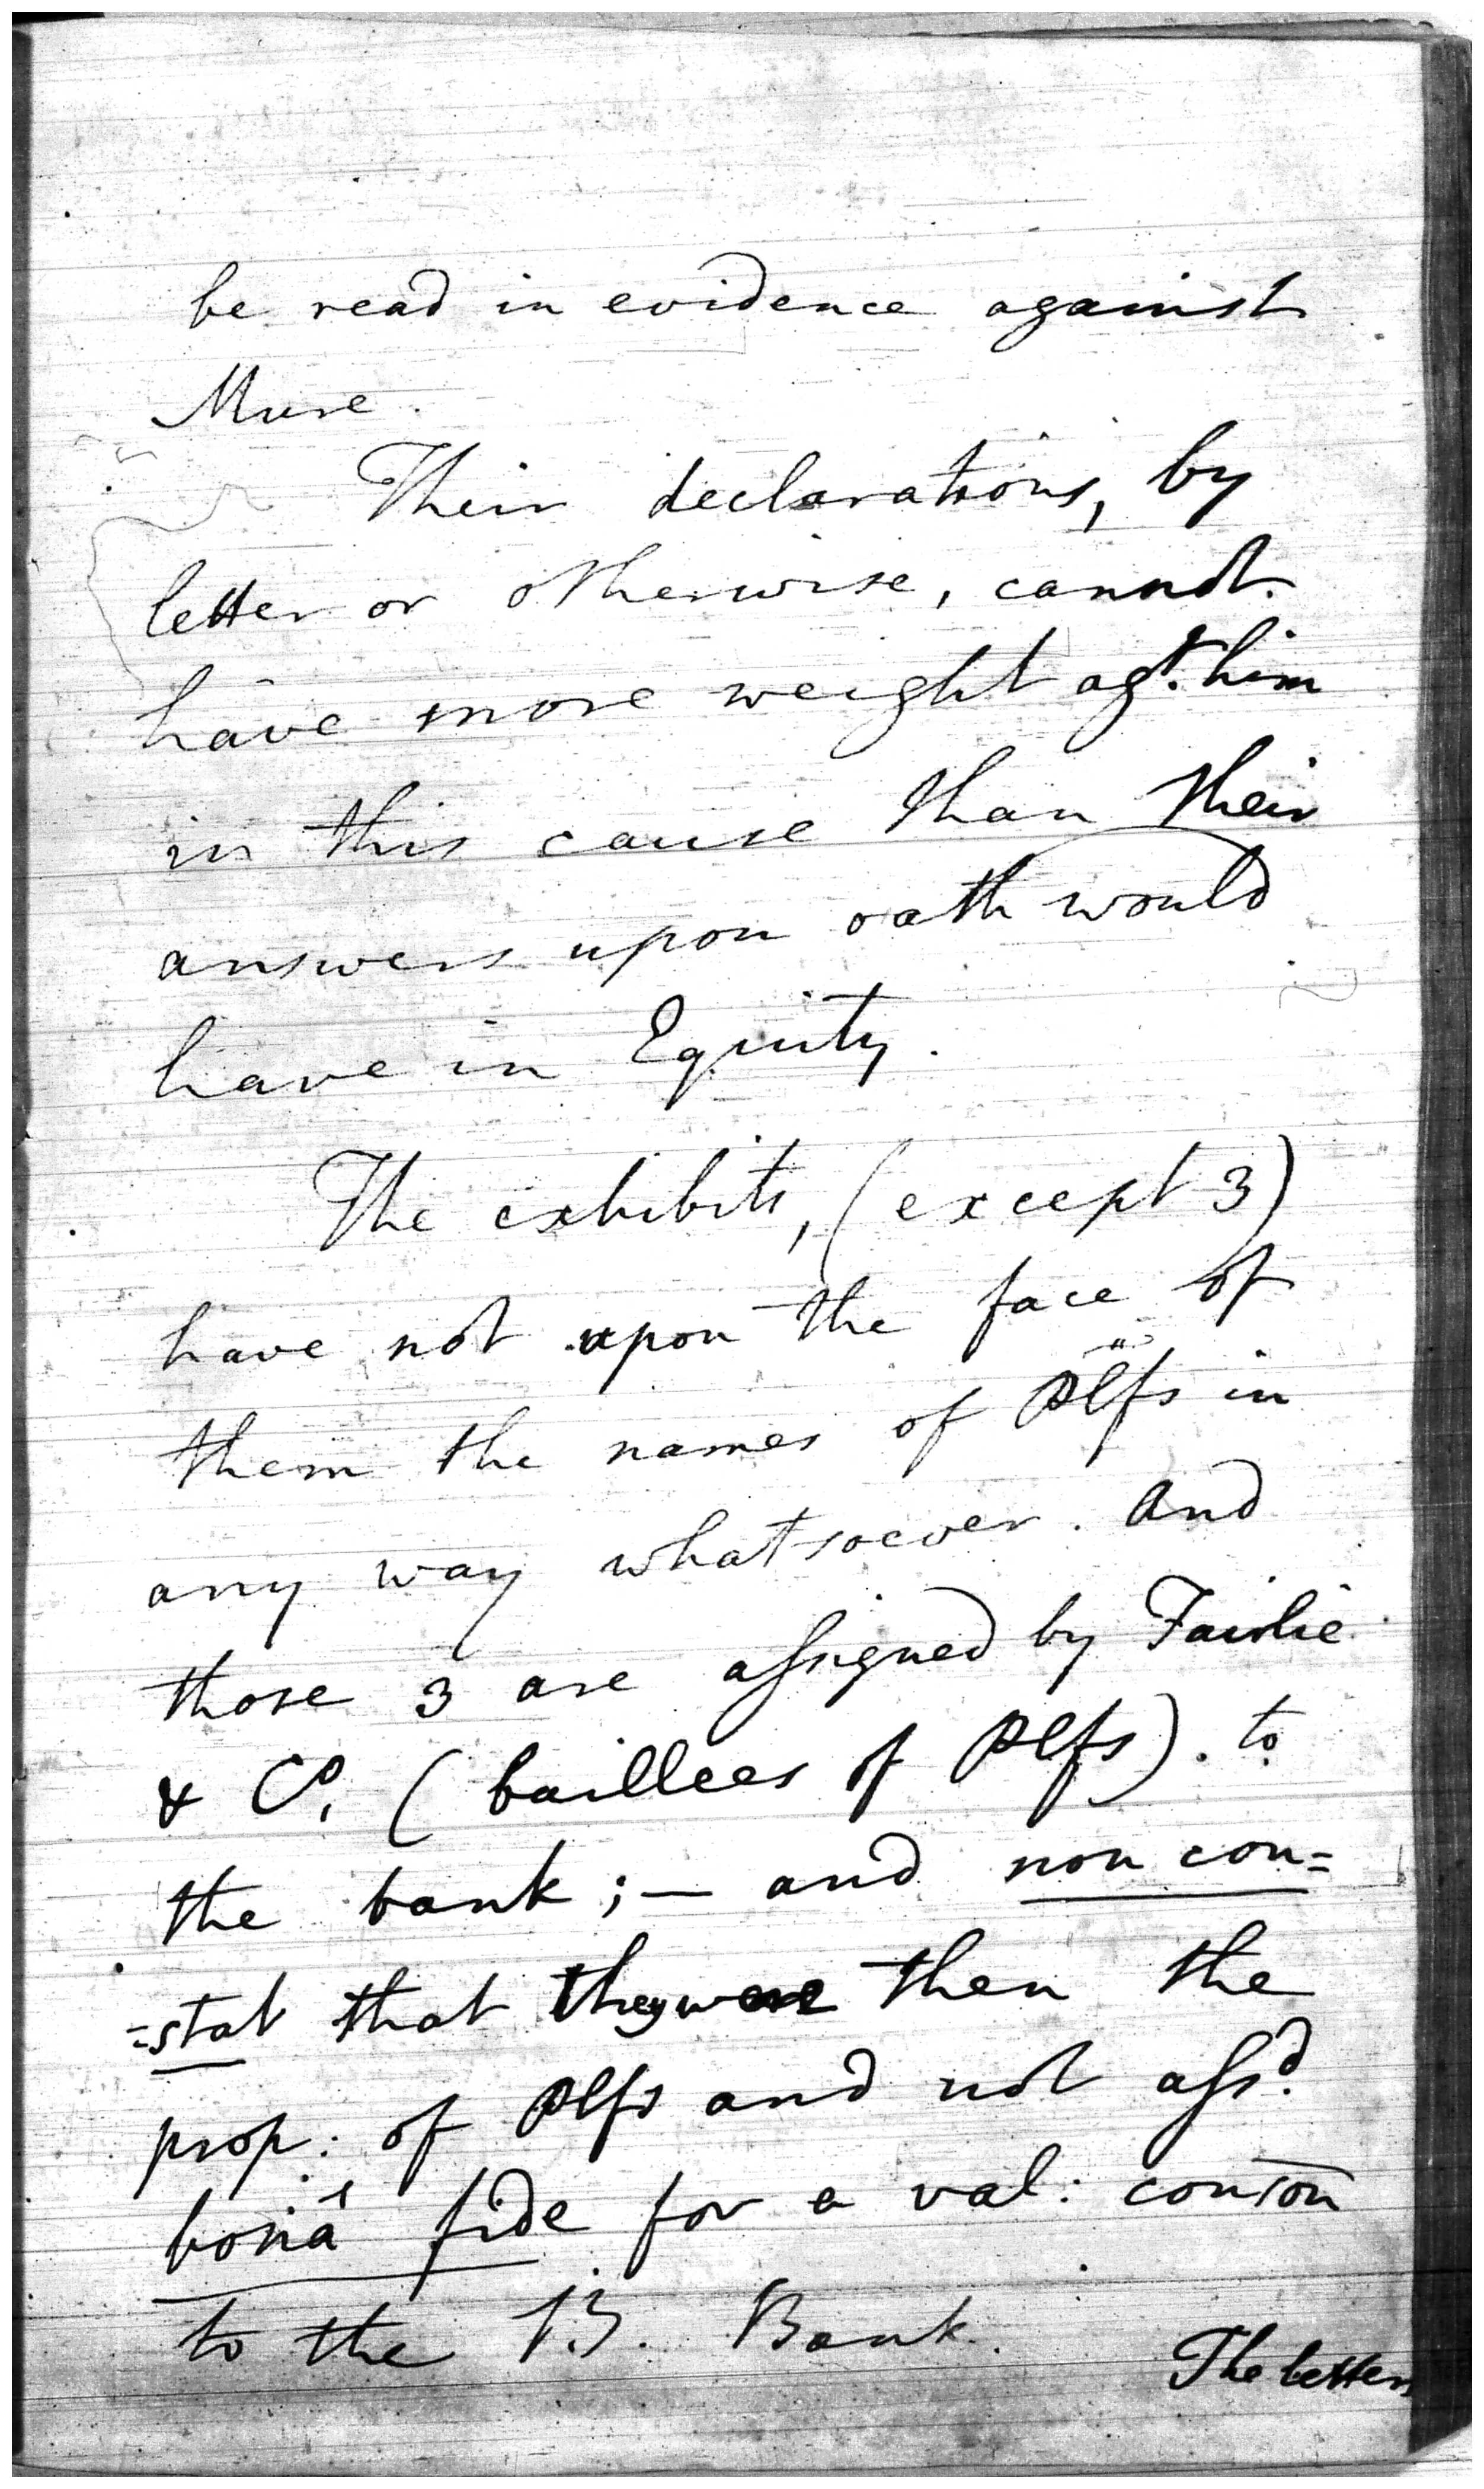 be read in evidence against
Muse.
Their declarations, by
letter or otherwise, cannot
have more weight agt. him
in this cause than their
answers upon oath would
have in Equity.
The exhibits, (except 3)
have not upon the face of
them the names of Plfs in
any way whatsoever. And
those 3 are assigned by Fairlie
& Co. (baillees of Plfs). to
the bank; — and non con=
=stat that they were then the
prop: of Plfs and not assd.
bonâ fide for a val: conson
to the B. Bank.
The letters